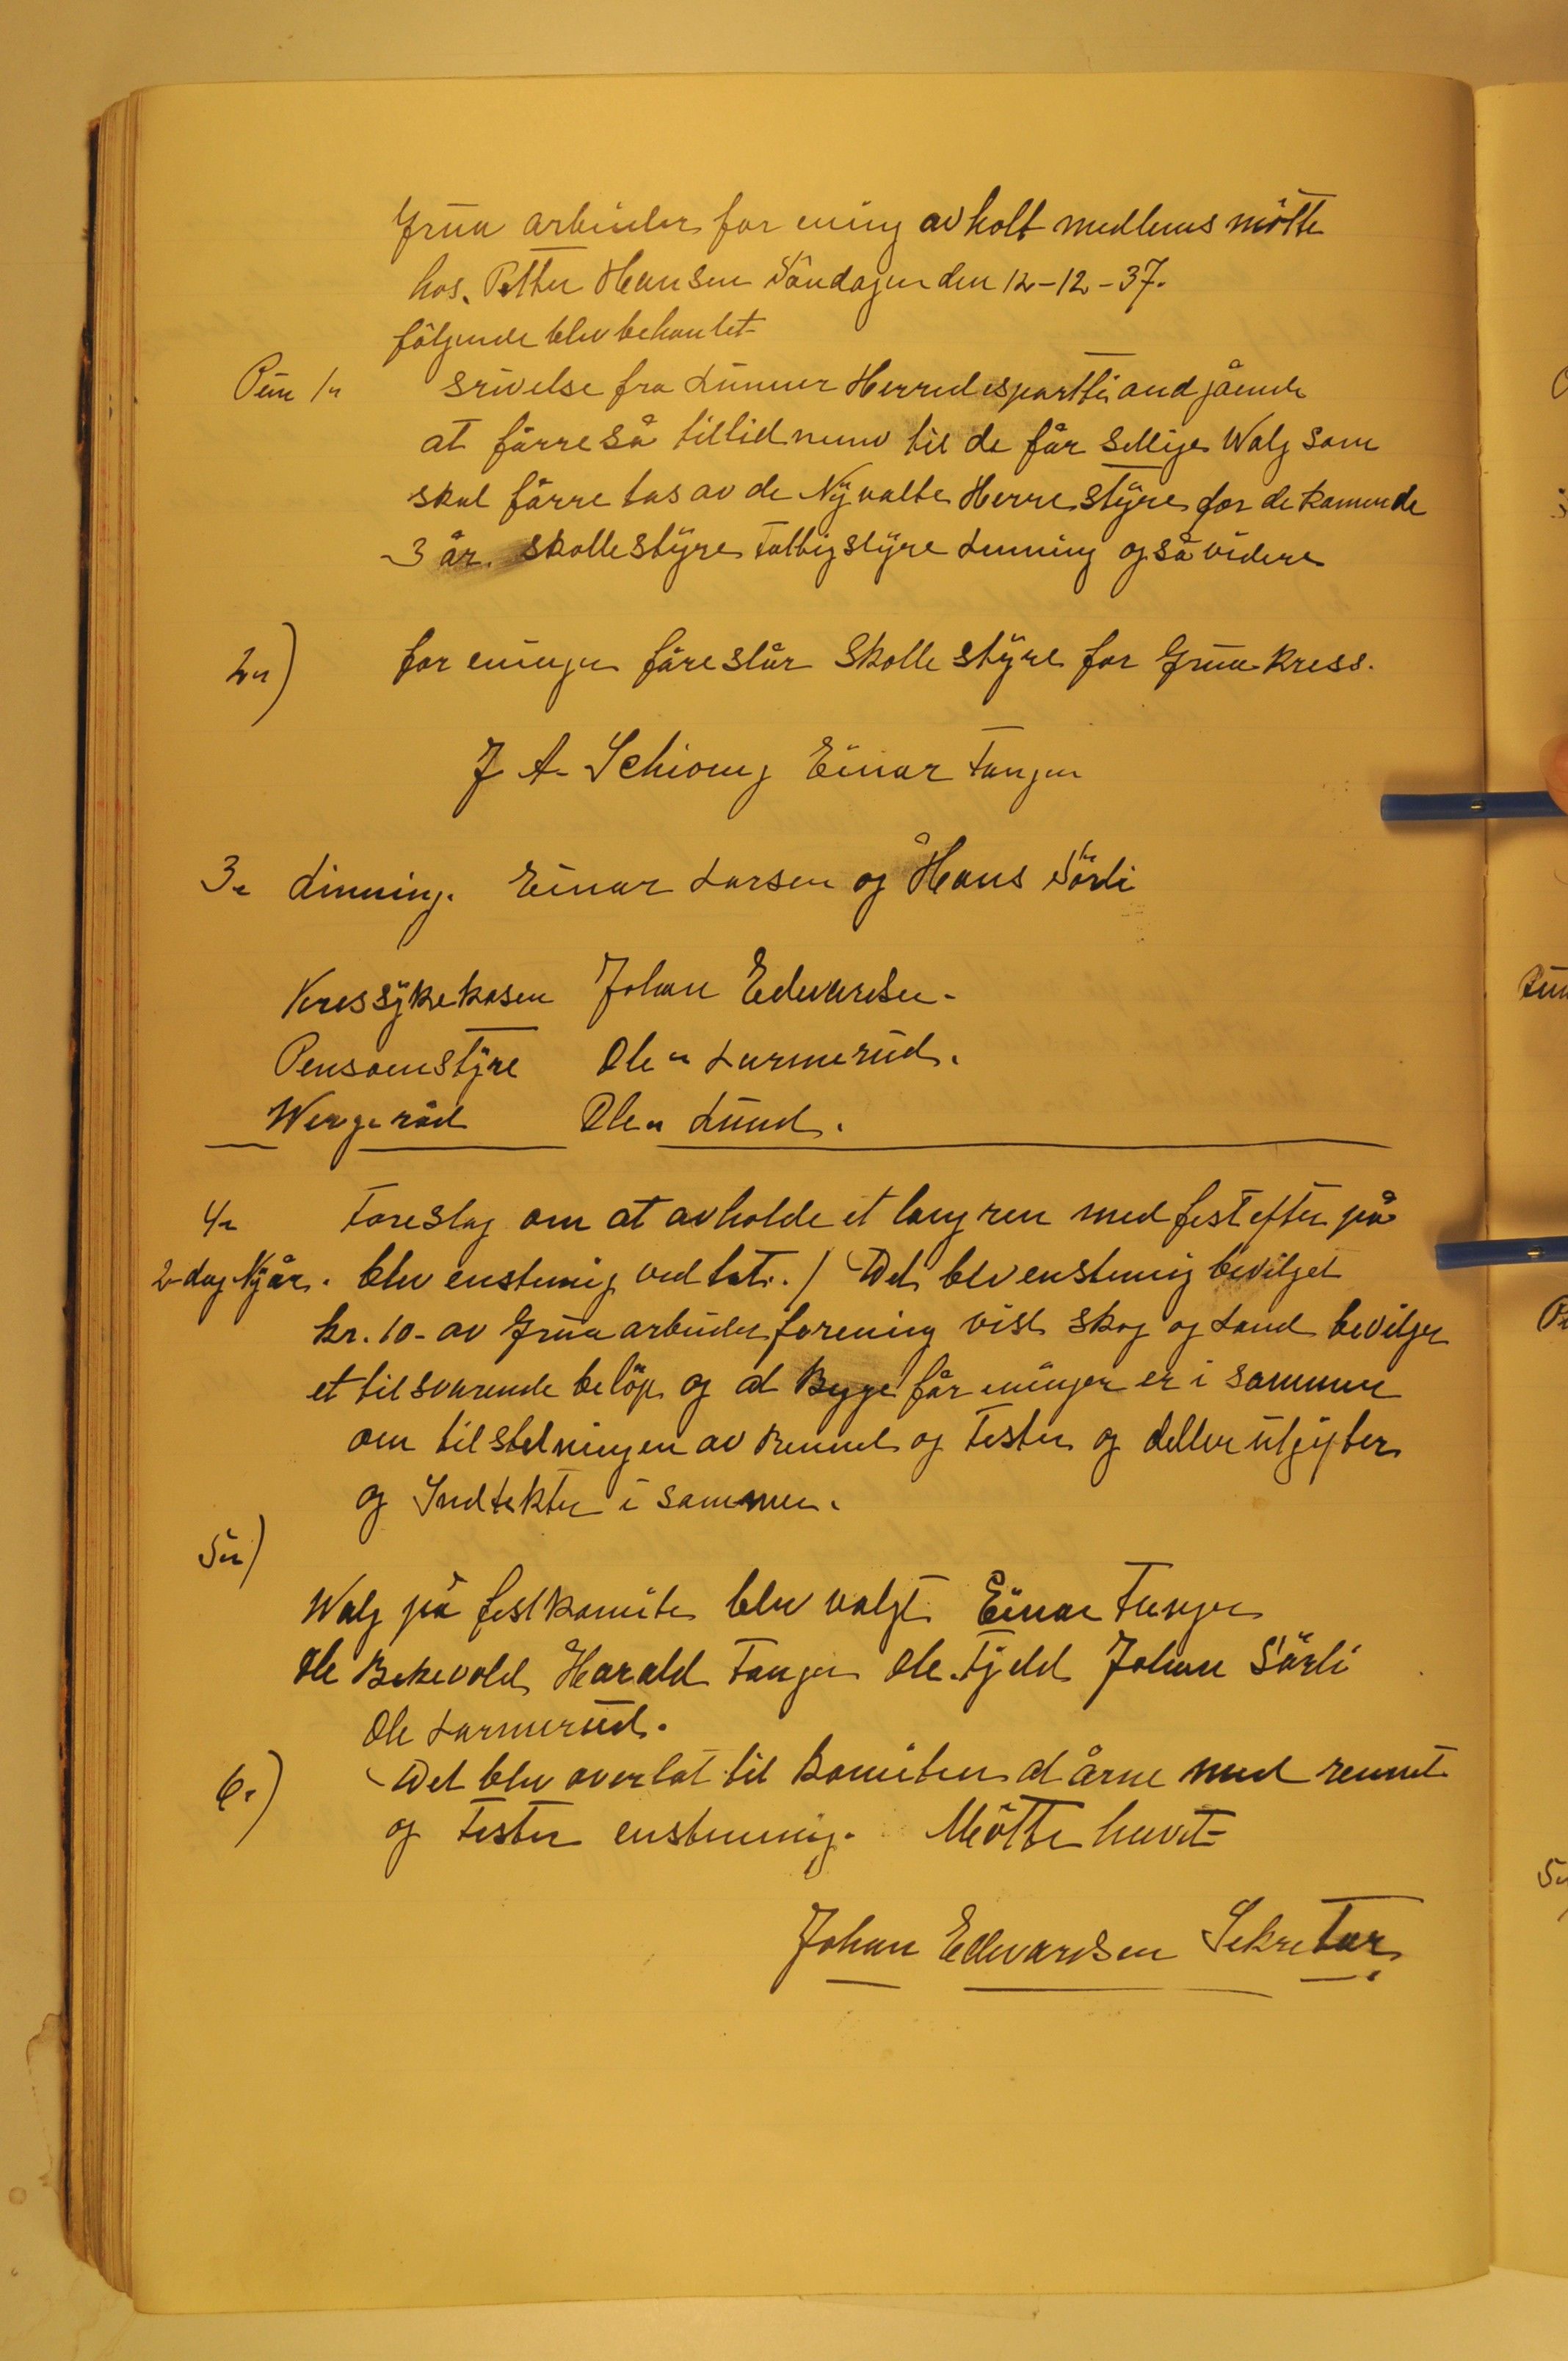 Grua arbeider for ening avholt medlems mötte
hos. Petter Hansen Söndagen den 12-12-37.
följende blev behantet-
Pun 1" srivelse fra Lunner Herredsparti andgåenede
at förreså tillid menn til de får sellige Walg som
skal förre tas av de Nÿ valte Herre stÿre for de komende
3 år. skolle stÿre Fattig stÿre Linning og så videre
2") for eningen föreslår Skolle stÿre for Grua kress.
J. A. Schiong Einar Tangen
3" Linning. Einar Larsen og Hans Sörli
Kressÿkekasen Johan Edvardsen-
Pensoenstÿre Ole " Larmerud.
Werge råd Ole " Lund.
4" Foreslag om at avholde et langren med fest efter på
2-dag Nÿår. blev enstemig vedtat. / Det blev enstemig bevilget
kr. 10- av Grua arbeider forening vist skog og Land bevilger
et tilsvarende belöp og at Begge för eninger er i sammen
om tilstelningen av Rennet og Festen og deller utgifter
og Indtekter i sammen.
5")
Walg på festkomite blev valgt Einar Tangen
Ole Bekevold Harald Tangen Ole Fjeld Johan Sörli
Ole Larmerud.
6") Det blev overlat til komiteen at årne med rennet
og Festen enstemmig. Mötte hevet-
Johan Edvardsen Sekretær